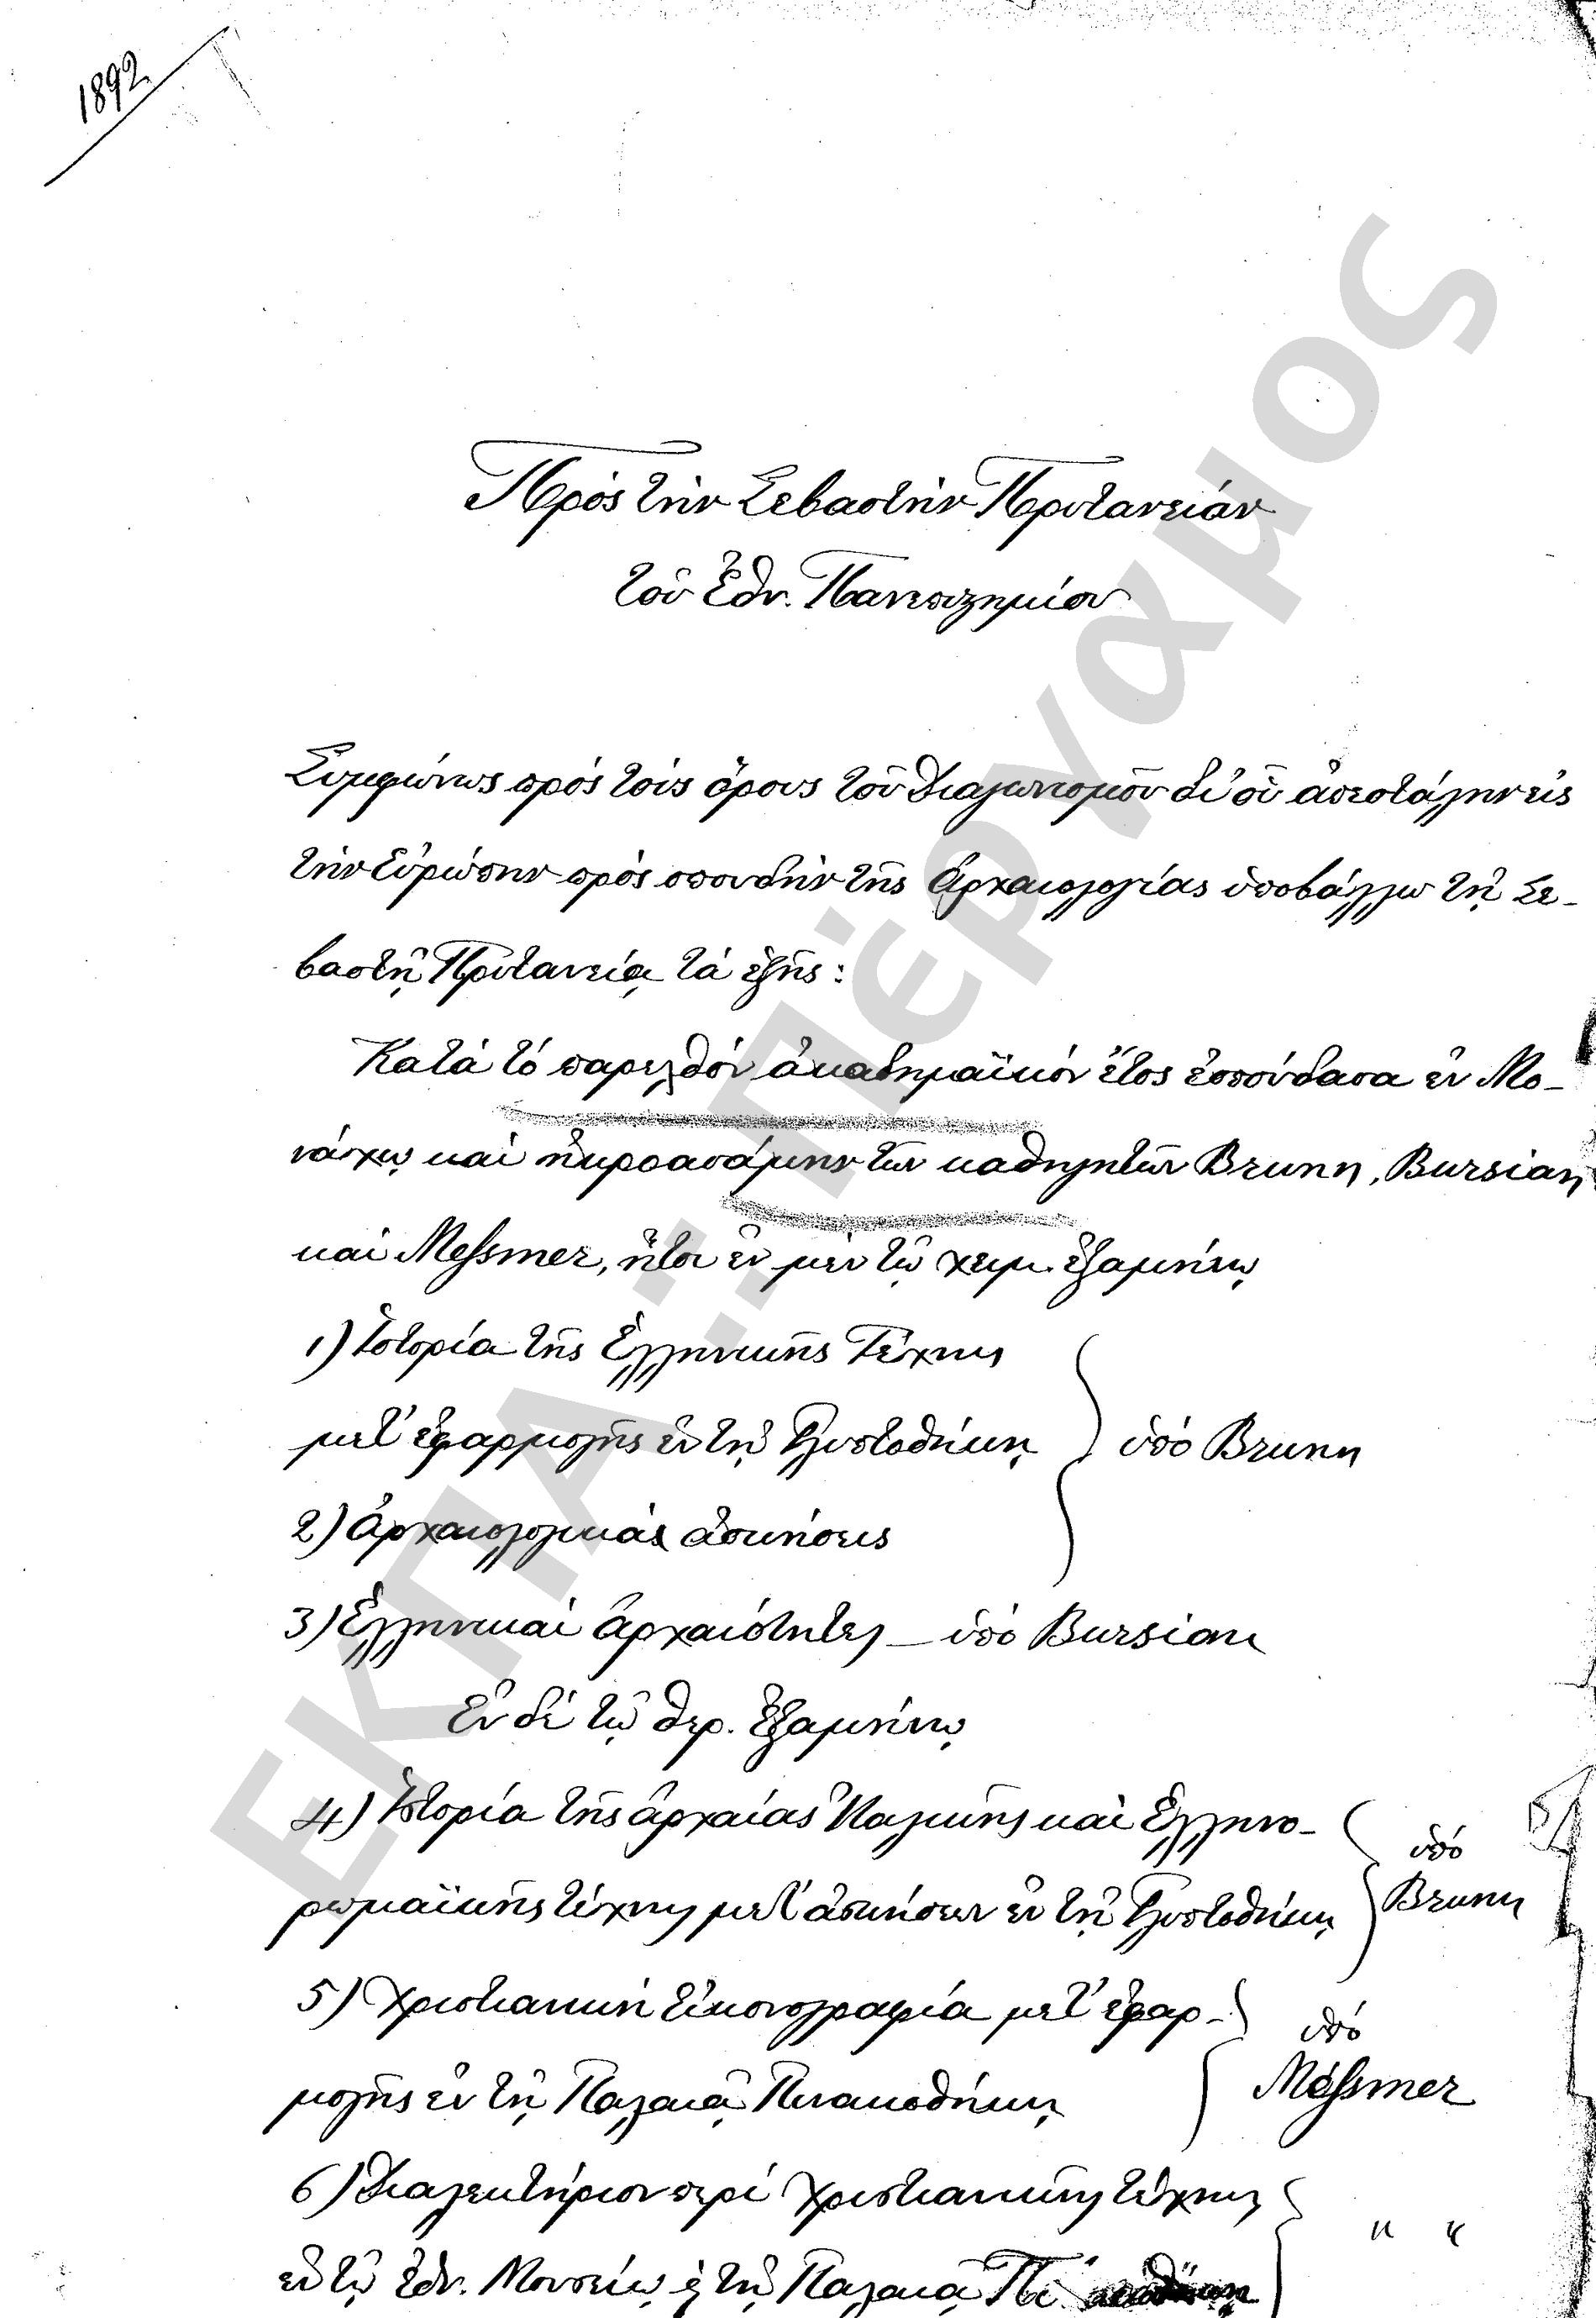 1892
Πρὸς τὴν Σεβαστὴν Πρυτανείαν
τοῦ Ἐθν. Πανεπιστημίου
Συμφώνως πρὸς τοὺς ὅρους τοῦ διαγωνισμοῦ δι' οὗ ἀπεστάλην εἰς
τὴν Εὐρώπην πρὸς σπουδὴν τῆς Ἀρχαιολογίας ὑποβάλλω τῇ Σε-
βαστῇ Πρυτανείᾳ τὰ ἑξῆς:
Κατὰ τὸ παρελθὸν ἀκαδημαϊκὸν ἔτος ἐσπούδασα ἐν Μο-
νάχῳ καὶ ἠκροασάμην τῶν καθηγητῶν Brunn, Bursian
καὶ Messmer, ἤτοι ἐν μὲν τῷ χειμ. ἑξαμήνῳ
1) Ἱστορία τῆς Ἑλληνικῆς Τέχνης
μετ' ἐφαρμογῆς ἐν τῇ Γλυπτοθήκῃ } ὑπὸ Brunn
2) Ἀρχαιολογικὰς ἀσκήσεις
3) Ἑλληνικαὶ ἀρχαιότητες – ὑπὸ Bursian
Ἐν δὲ τῷ θερ. ἑξαμήνῳ
4) Ἱστορία τῆς ἀρχαίας Ἰταλικῆς καὶ Ἑλληνο- } ὑπὸ
ρωμαϊκῆς τέχνης μετ' ἀσκήσεων ἐν τῇ Γλυπτοθήκῃ } Brunn
5) Χριστιανικὴ Εἰκονογραφία μετ' ἐφαρ- } ὑπὸ
μογῆς ἐν τῇ Παλαιᾷ Πινακοθήκῃ } Messmer
6) Διαλεκτήριον περὶ Χριστιανικῆς τέχνης } " "
ἐν τῷ Ἐθν. Μουσείῳ ᾗ τῇ Παλαιᾷ Πινακοθήκῃ
ΕΚΠΑ.: Πέργαμος